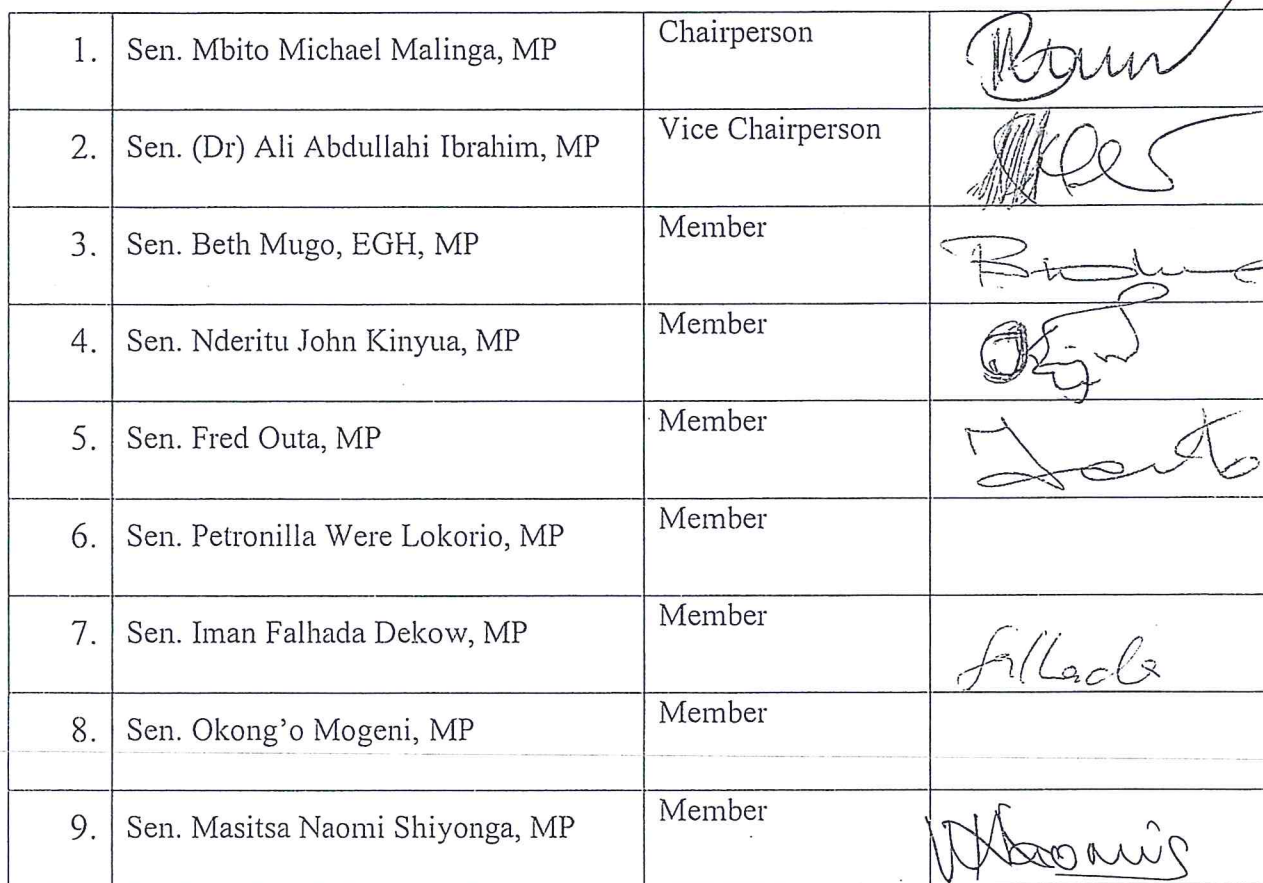 1. Sen. Mbito Michael Malinga, MP Chairperson
2. Sen. (Dr) Ali Abdullahi Ibrahim, MP Vice Chairperson
3. Sen. Beth Mugo, EGH, MP Member
4. Sen. Nderitu John Kinyua, MP Member
5. Sen. Fred Outa, MP Member
6. Sen. Petronilla Were Lokorio, MP Member
7. Sen. Iman Falhada Dekow, MP Member falhada
8. Sen. Okong’o Mogeni, MP Member
9. Sen. Masitsa Naomi Shiyonga, MP Member